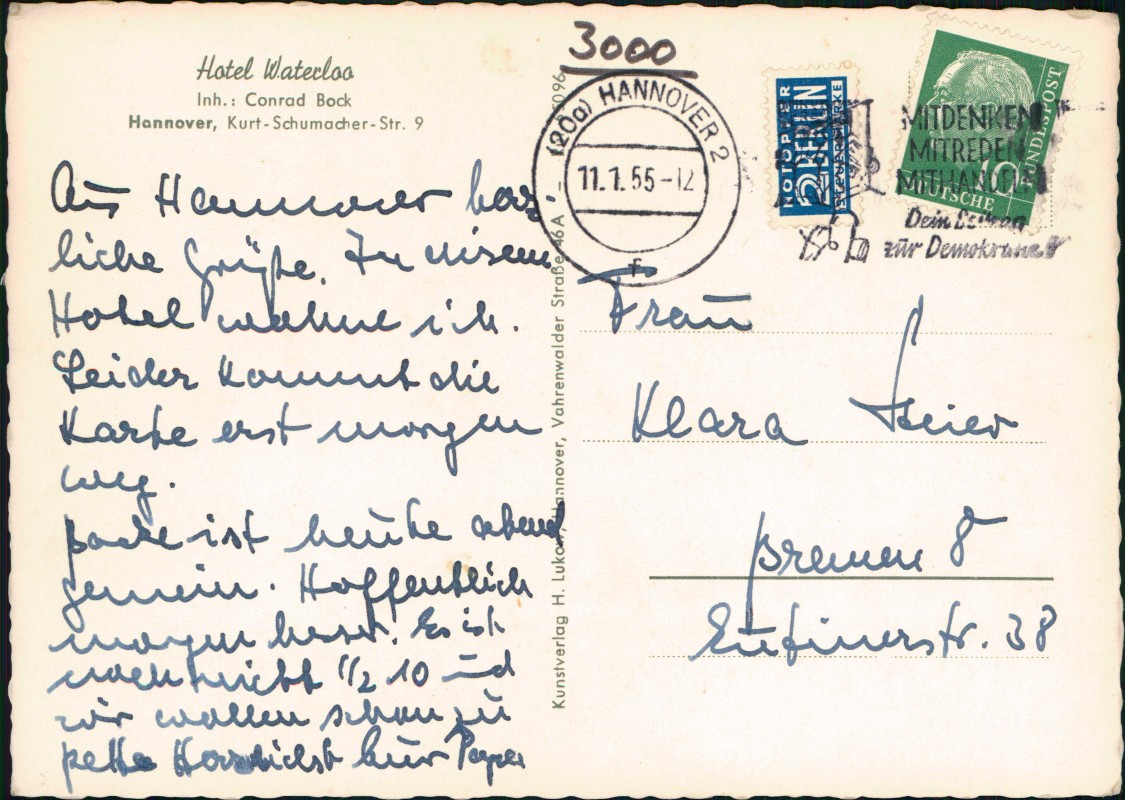 Hotel Waterloo
Inh.: Conrad Bock
Hannover, Kurt-Schumacher-Str. 9
3000
(20a) HANNOVER 2
11.1.55-12
F
NOTOPFER
2 BERLIN
STEUERMARKE
10
DEUTSCHE
BUNDESPOST
MITDENKEN
MITREDEN
MITHANDELN
Dein Beitrag
zur Demokratie
Aus Hannover herz-
liche Grüße. In diesem
Hotel wohne ich.
Leider kommt die
Karte erst morgen
weg.
ist heute abend
gemein. Hoffentlich
morgen besser. Es ist
noch nicht 1/2 10 und
wir wollen schon zu
Bette Herzlichst Euer Papa
Kunstverlag H. Lukow, Hannover, Vahrenwalder Straße 46 A
Frau
Klara Meier
Bremen 8
Eutinerstr. 38